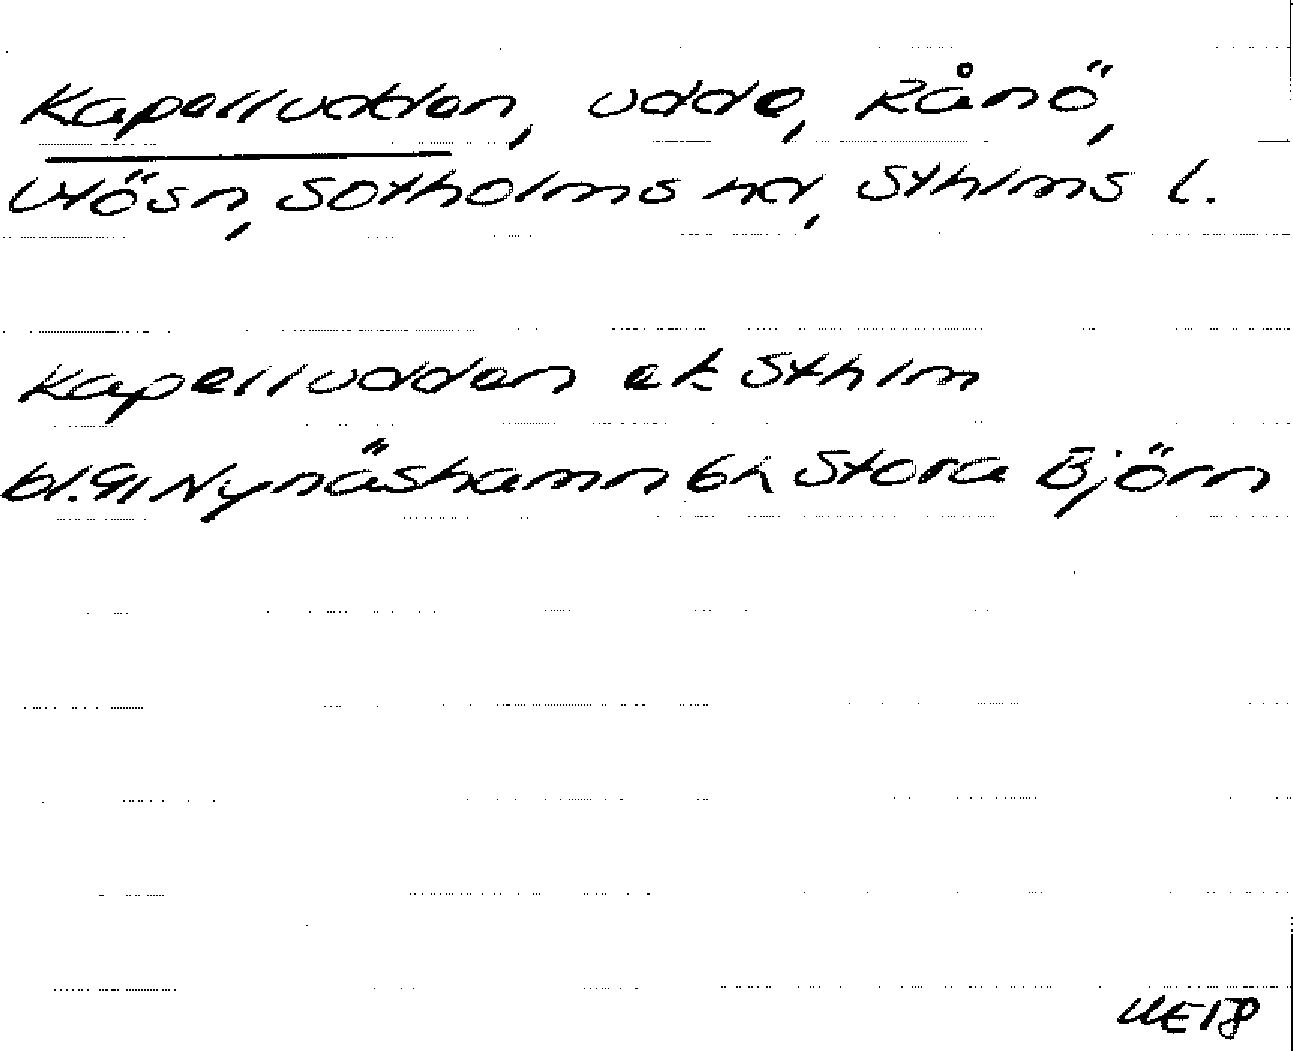 Kapelludden, udde, Rånö,
Utö sn, Sotholms hd, Sthlms l.
Kapelludden ek Sthlm
bl. 91 Nynäshamn 6h Stora Björn